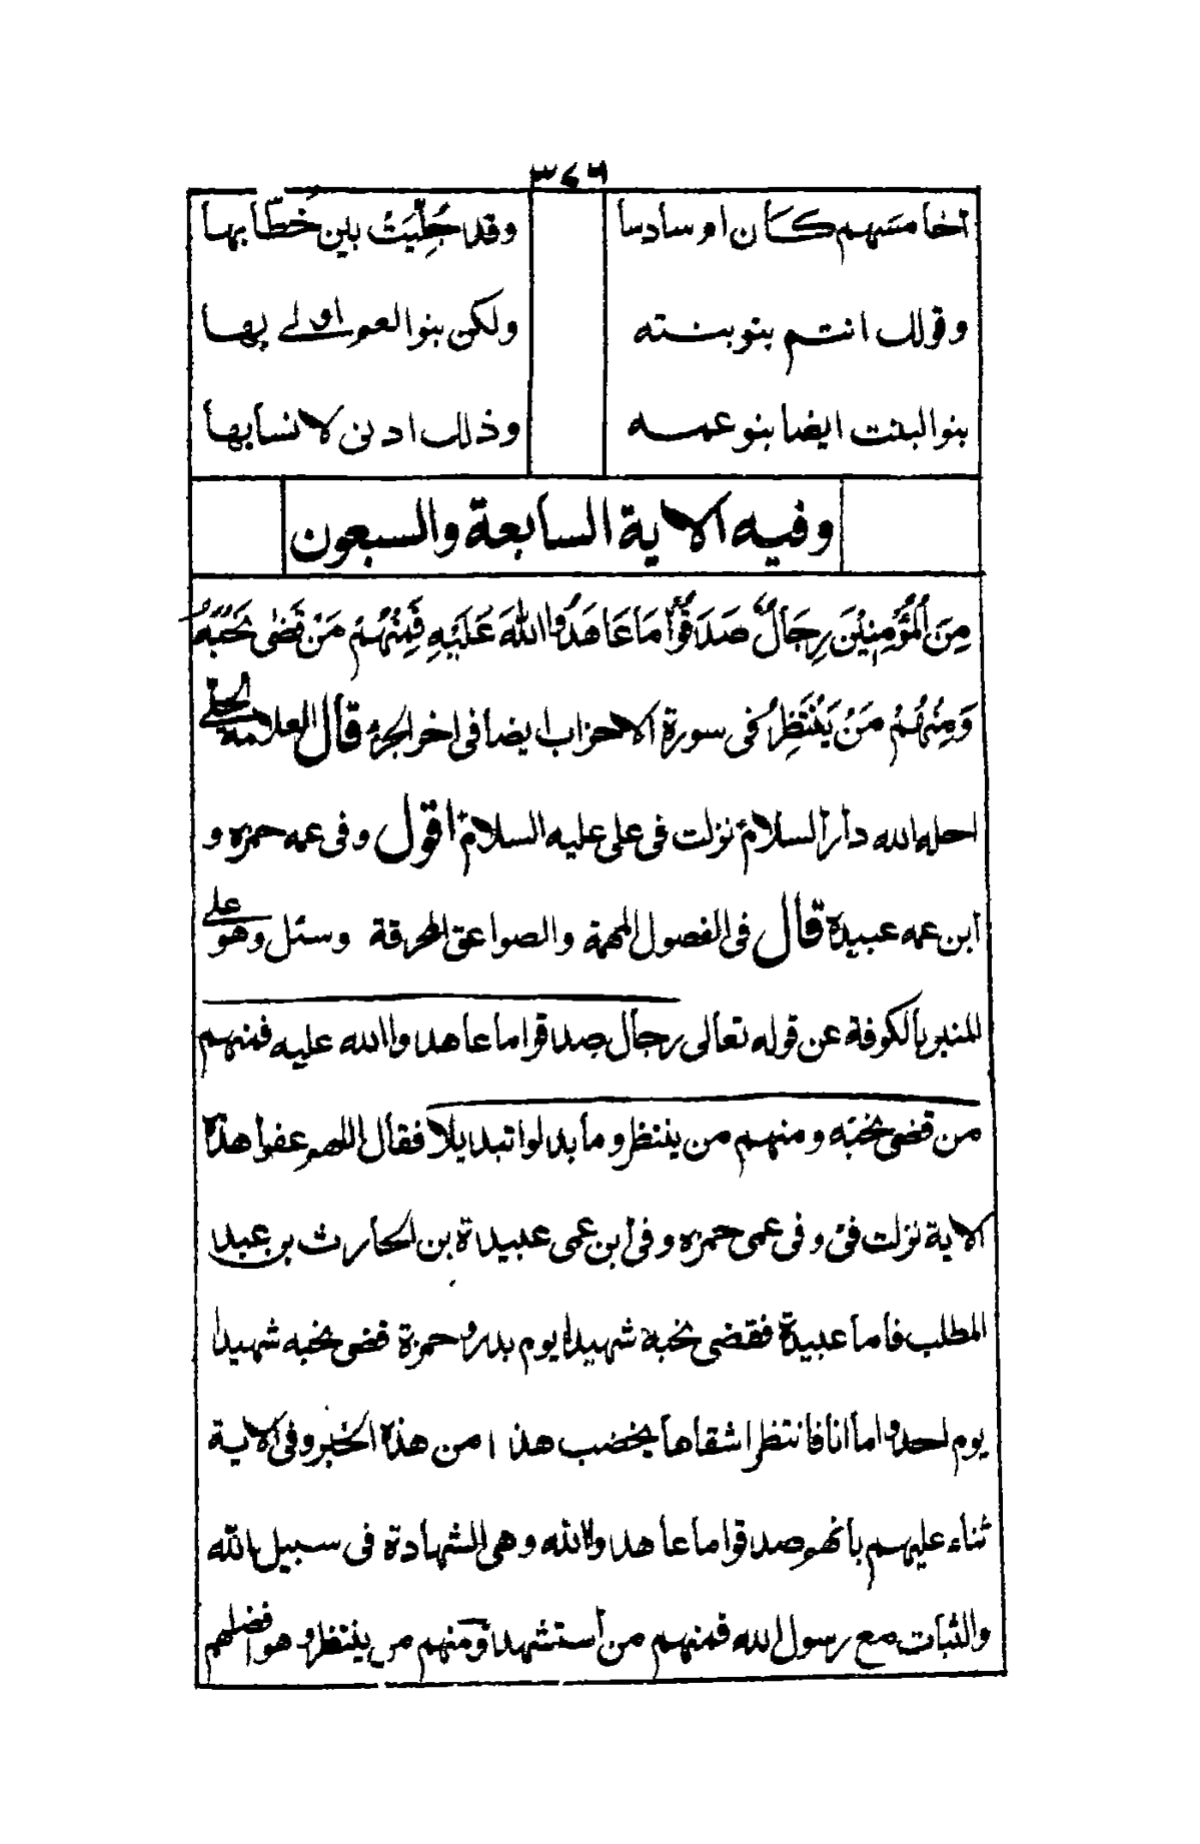 ٣٤٦
اخامسهم كان ام سادسا وقد جُلِّيَتْ بين خُطّابها
وقولك انتم بنو بنته ولكن بنوا العم اولے بها
بنوا البنت ايضا بنو عمه وذلك ادنى لانسابها
وفيه الاية السابعة والسبعون
مِنَ الْمُؤْمِنِيْنَ رِجَالٌ صَدَقُوْا مَا عَاهَدُوا اللهَ عَلَيْهِ فَمِنْهُمْ مَنْ قَضٰى نَحْبَهُ
وَمِنْهُمْ مَنْ يَنْتَظِرُ فى سورة الاحزاب ايضا فى اخر الجزء قال العلامة الحلے
احله الله دار السلام نزلت فى على عليه السلام اقول وفى عمه حمزه و
ابن عمه عبيدة قال فى الفصول المهمة والصواعق المحرقة وسئل وهو علے
المنبر بالكوفة عن قوله تعالى رجال صدقوا ما عاهدوا الله عليه فمنهم
من قضى نحبه ومنهم من ينتظر وما بدلوا تبديلا فقال اللهم عفوا هذه
الاية نزلت فىّ وفى عمى حمزه وفى ابن عمى عبيدة بن الحارث بن عبد
المطلب فاما عبيدة فقضى نحبه شهيدا يوم بدر وحمزة قضى نحبه شهيدا
يوم احد واما انا فانتظر اشقاها يخضب هذا من هذه الخبر وفى الاية
ثناء عليهم بانهم صدقوا ما عاهدوا الله وهى الشهادة فى سبيل الله
والثبات مع رسول الله فمنهم من استشهد ومنهم من ينتظر وهو افضلهم